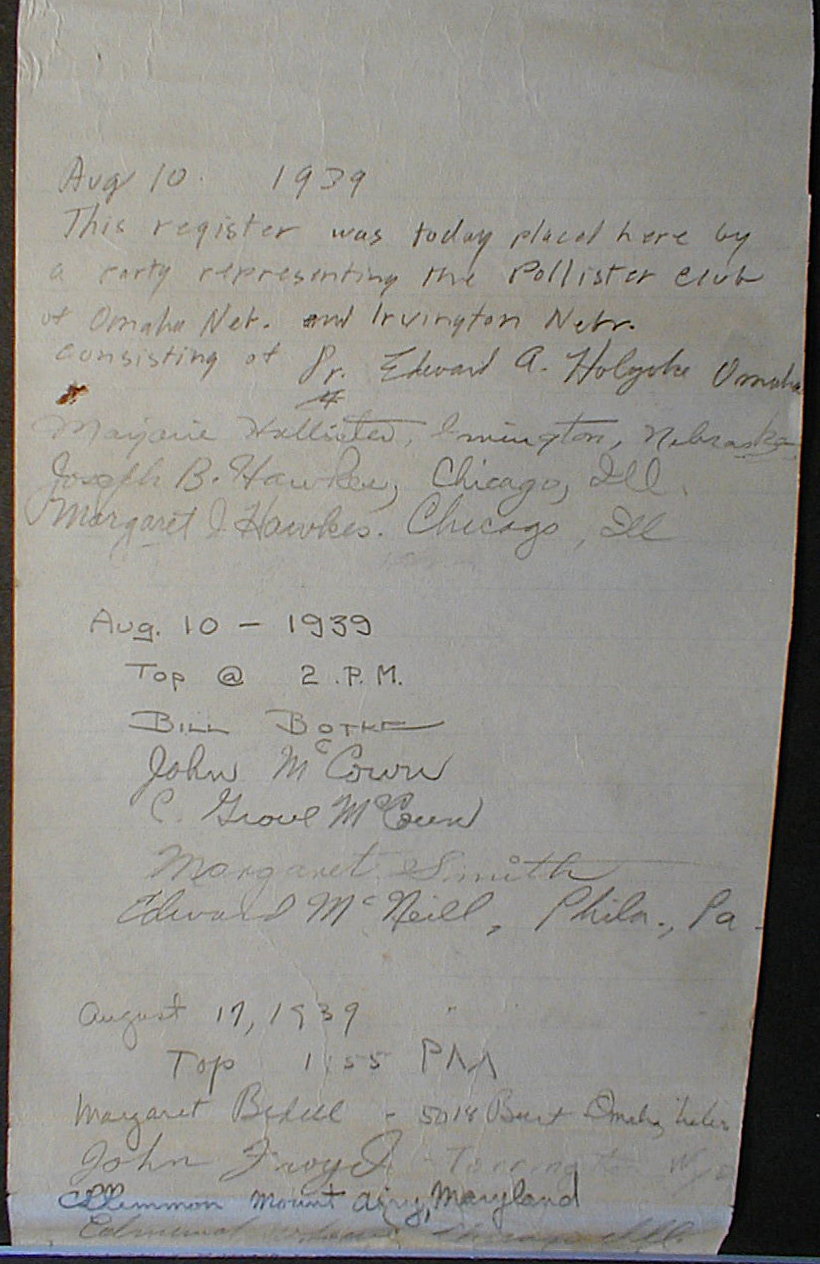 Aug 10. 1939
This register was today placed here by
a party representing the Pollister Club
of Omaha Neb. and Irvington Nebr.
consisting of Dr. Edward A. Holyoke Omaha
Marjorie Hollister, Irvington, Nebraska
Joseph B. Hawkes, Chicago, Ill.
Margaret J Hawkes. Chicago, Ill
Aug. 10 - 1939
Top @ 2 P.M.
Bill Bothe
John McCown
C. Grove McCown
Margaret Smith
Edward McNeill, Phila., Pa.
August 17, 1939
Top 1:55 PM
Margaret Bedell - 5018 Burt Omaha, Nebr
John - Torrington Wyo
Mount Airy, Maryland
Chicago Ill